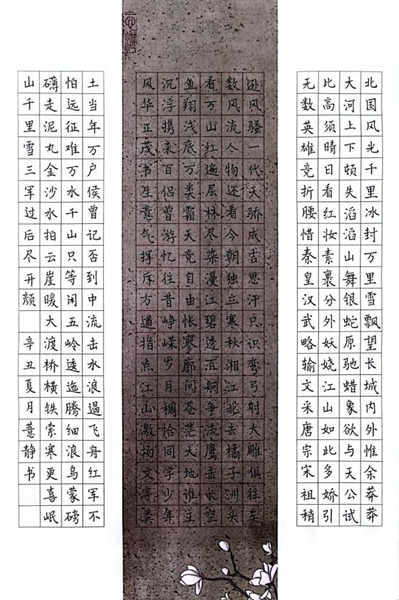 北国风光千里冰封万里雪飘望长城内外惟余莽莽
大河上下顿失滔滔山舞银蛇原驰蜡象欲与天公试
比高须晴日看红妆素裹分外妖娆江山如此多娇引
无数英雄竞折腰惜秦皇汉武略输文采唐宗宋祖稍
逊风骚一代天骄成吉思汗只识弯弓射大雕俱往矣
数风流人物还看今朝独立寒秋湘江北去橘子洲头
看万山红遍层林尽染漫江碧透百舸争流鹰击长空
鱼翔浅底万类霜天竞自由怅寥廓问苍茫大地谁主
沉浮携来百侣曾游忆往昔峥嵘岁月稠恰同学少年
风华正茂书生意气挥斥方遒指点江山激扬文字粪
土当年万户侯曾记否到中流击水浪遏飞舟红军不
怕远征难万水千山只等闲五岭逶迤腾细浪乌蒙磅
礴走泥丸金沙水拍云崖暖大渡桥横铁索寒更喜岷
山千里雪三军过后尽开颜 辛丑夏月薏静书